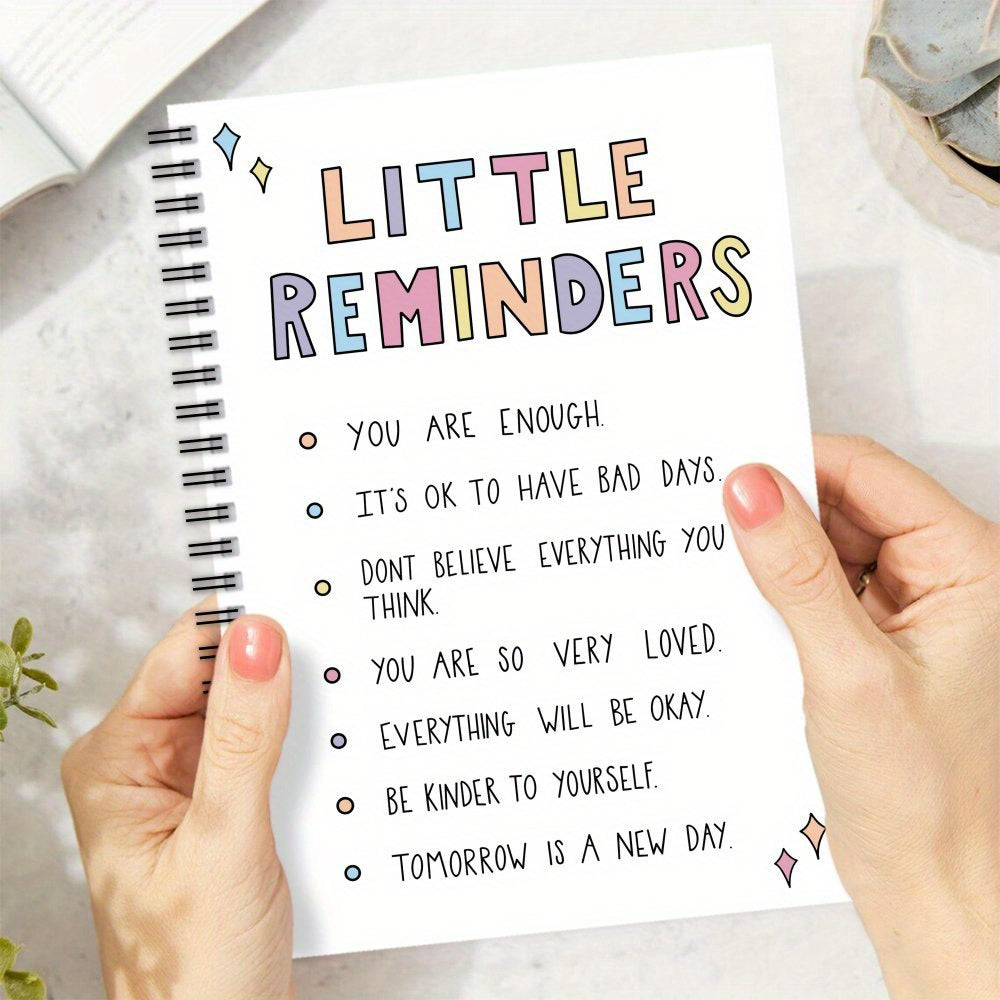 LITTLE
REMINDERS
YOU ARE ENOUGH.
IT'S OK TO HAVE BAD DAYS.
DONT BELIEVE EVERYTHING YOU
THINK.
YOU ARE SO VERY LOVED.
EVERYTHING WILL BE OKAY.
BE KINDER TO YOURSELF.
TOMORROW IS A NEW DAY.